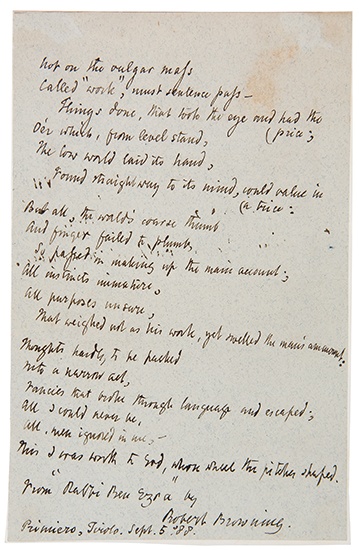 Not on the vulgar mass
Called "work", must sentence pass –
Things done, that took the eye and had the
(price;
O'er which, from level stand,
The low world laid its hand,
Found straightway to its mind, could value in
(a trice:
But all, the world's coarse thumb
And finger failed to plumb,
So passed in making up the main account;
All instincts immature,
All purposes unsure,
That weighed not as his work, yet swelled the man's amount:
Thoughts hardly to be packed
Into a narrow act,
Fancies that broke through language and escaped;
All I could never be,
All, men ignored in me, –
This I was worth to God, whose wheel the pitcher shaped.
From "Rabbi Ben Ezra" by
Robert Browning.
Primiero, Tirolo. Sept. 5. '88.